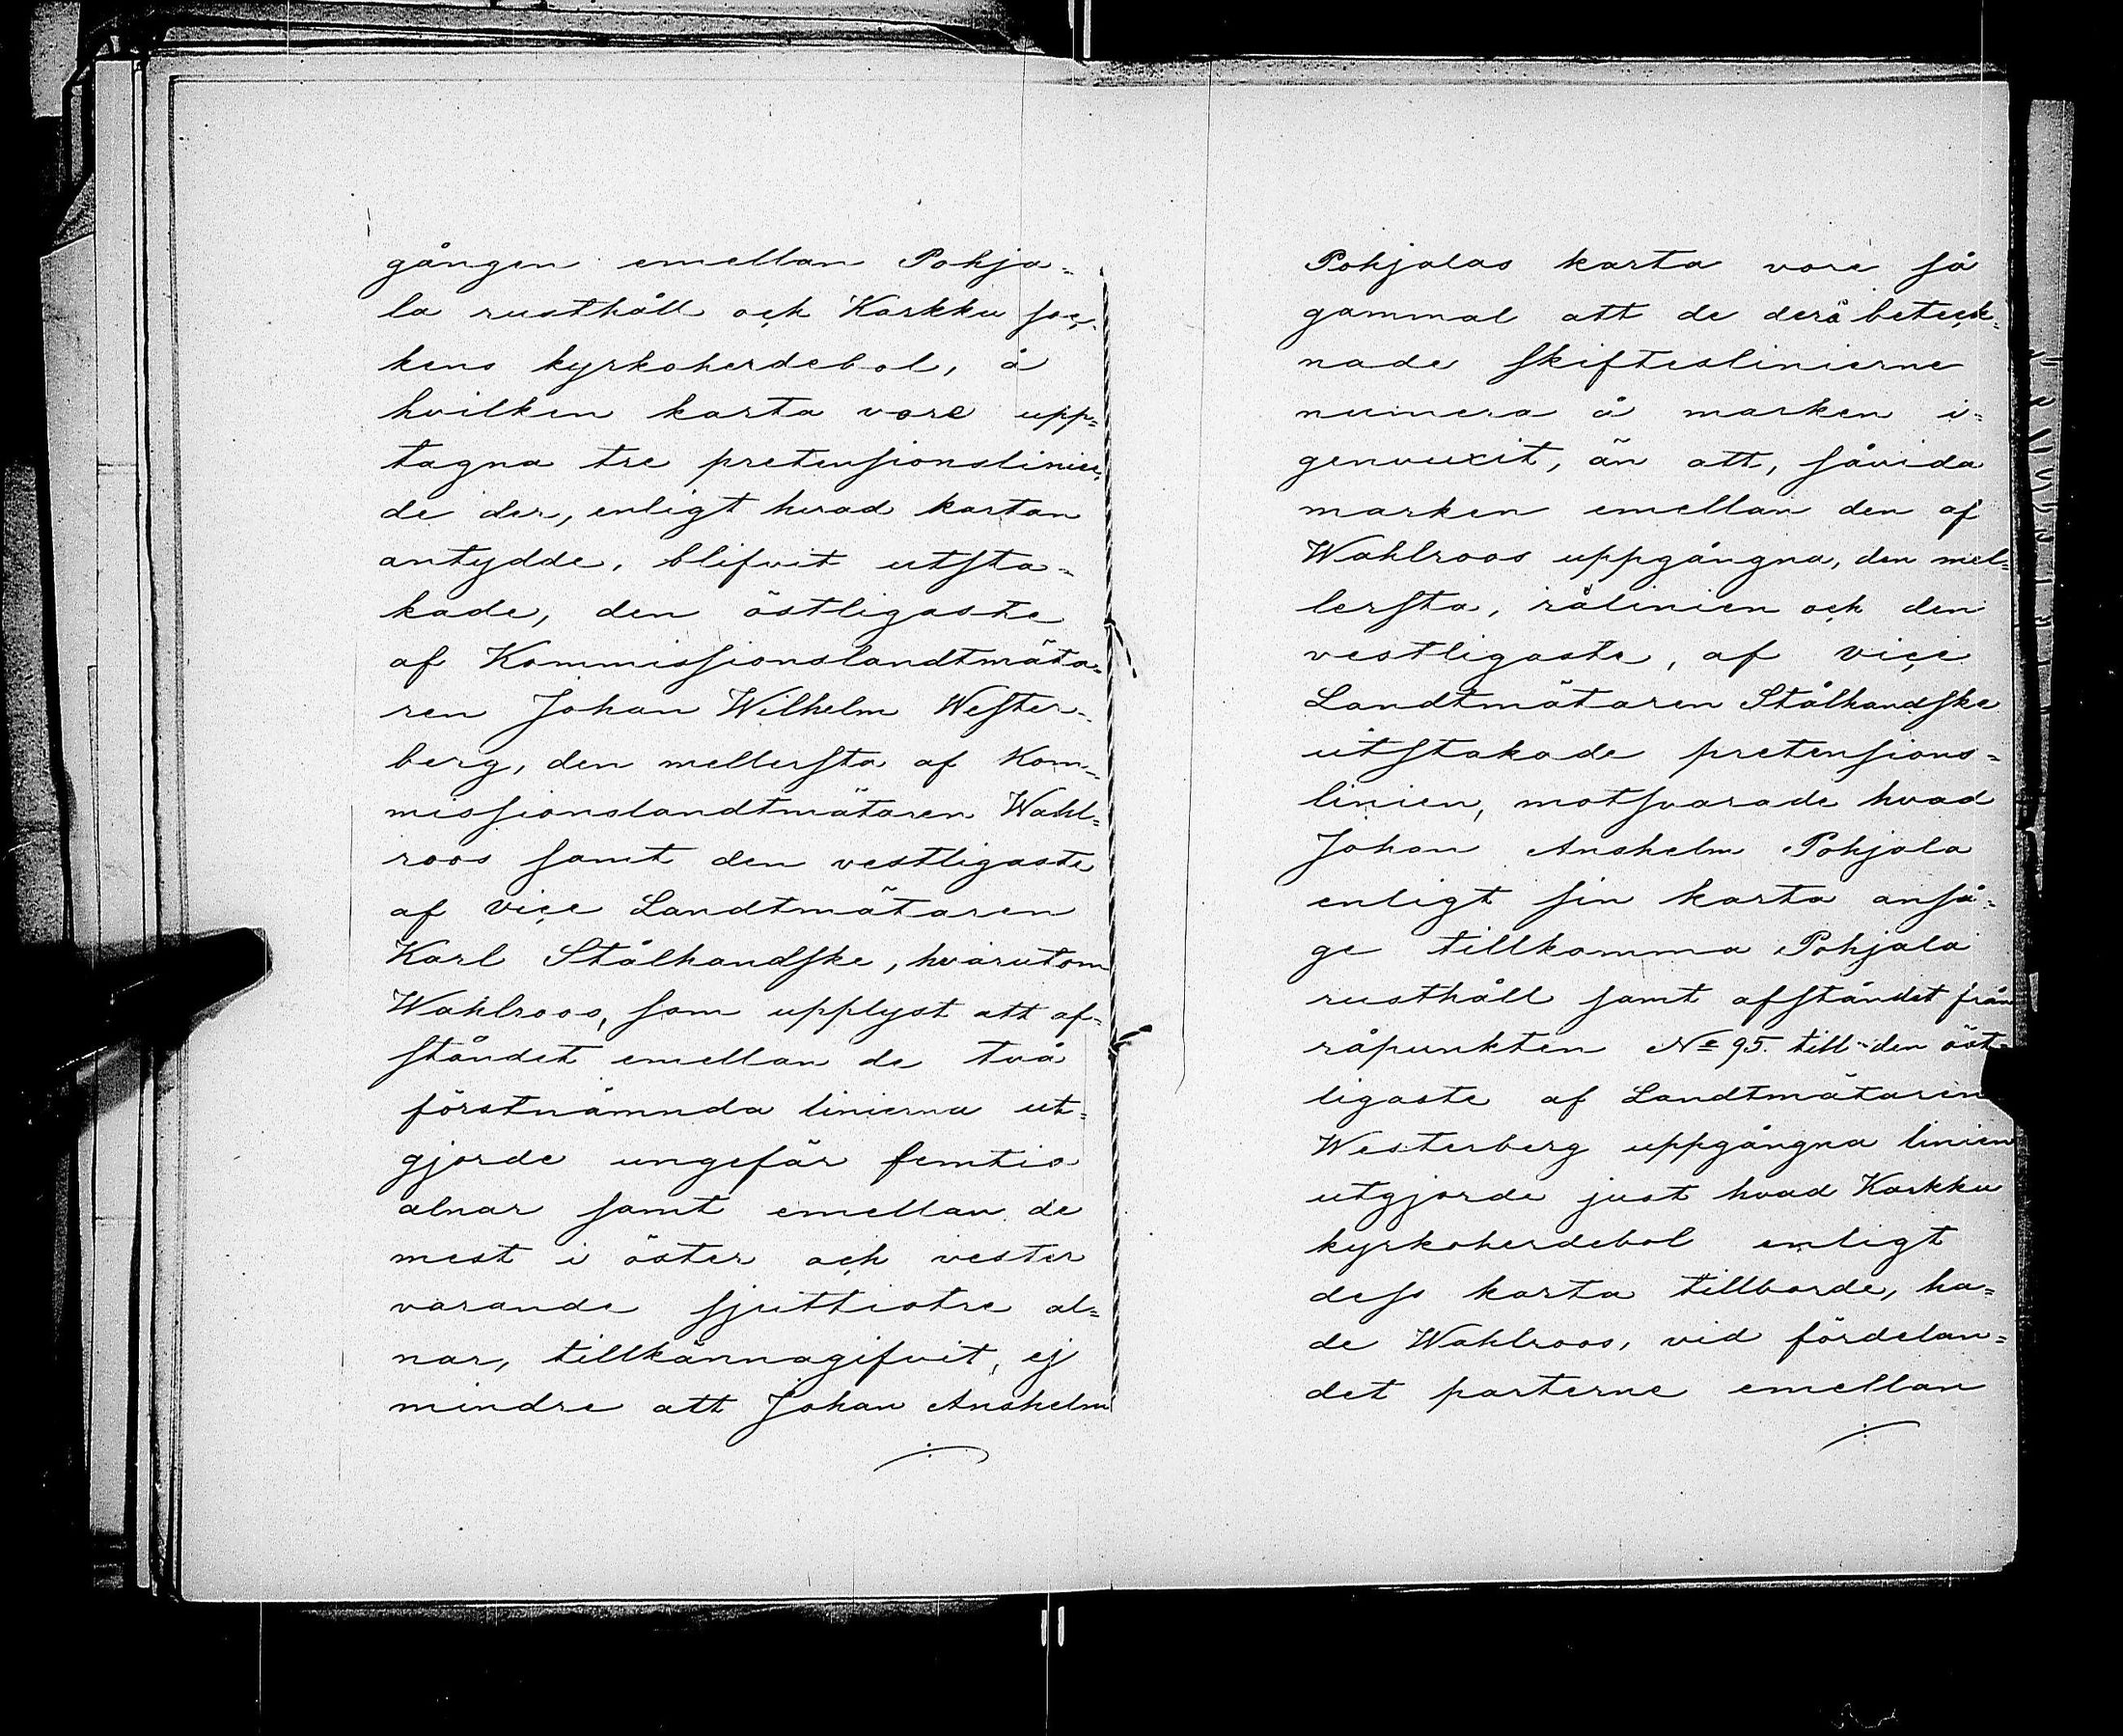 gången emellan Pohja-
la rusthåll och Karkku soc-
kens kyrkoherdebol, å
hvilken karta vore upp-
tagna tre pretensionslinier,
de der, enligt hvad kartan
antydde, blifvit utsta-
kade, den östligaste
af Kommissionslandtmäta-
ren Johan Wilhelm Wester-
berg, den mellersta af Kom-
missionslandtmätaren Wahl-
roos samt den vestligaste
af vice Landtmätaren
Karl Stålhandske, hvarutom
Wahlroos, som upplyst att af-
ståndet emellan de två
förstnämnda linierna ut-
gjorde ungefär femtio
alnar samt emellan de
mest i öster och vester
varande sjuttiotre al-
nar, tillkännagifvit, ej
mindre att Johan Anshelm
Pohjalas karta vore så
gammal att de derå beteck-
nade skifteslinierne
numera å marken i-
genvuxit, än att, såvida
marken emellan den af
Wahlroos uppgångna, den mel-
lersta, rålinien och den
vestligaste, af vice
Landtmätaren Stålhandske
utstakade pretensions-
linien, motsvarade hvad
Johan Anshelm Pohjala
enligt sin karta anså-
ge tillkomma Pohjala
rusthåll samt afståndet från
råpunkten No 95. till den öst-
ligaste af Landtmätaren
Westerberg uppgångna linien
utgjorde just hvad Karkku
kyrkoherdebol enligt
dess karta tillborde, ha-
de Wahlroos, vid fördelan-
det parterne emellan